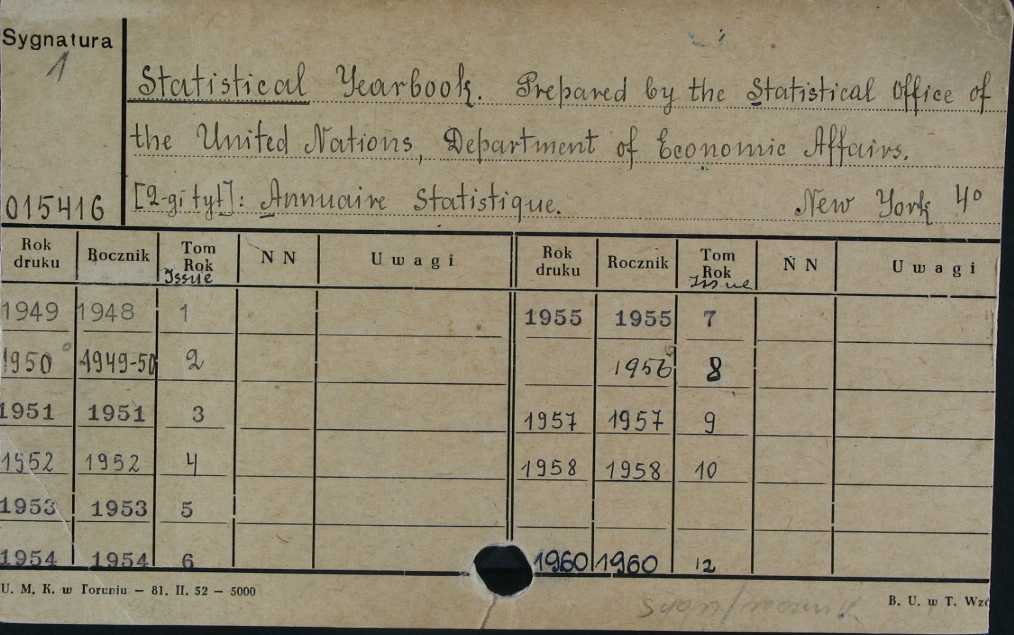 Sygnatura
1
015416
Statistical Yearbook. Prepared by the Statistical Office of
the United Nations, Department of Economic Affairs.
[2-gi tyt]: Annuaire Statistique. New York 4º
Rok druku Rocznik Tom Rok Issue N N Uwagi Rok druku Rocznik Tom Rok Issue N N Uwagi
1949 1948 1 1955 1955 7
1950 1949-50 2 1956 8
1951 1951 3 1957 1957 9
1952 1952 4 1958 1958 10
1953 1953 5
1954 1954 6 1960 1960 12
U. M. K. w Toruniu — 81. II. 52 — 5000 B. U. w T. Wzó